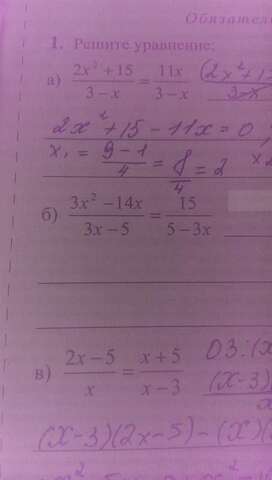 Обязател
1. Решите уравнение:
а) (2x² + 15)/(3 − x) = 11x/(3 − x)
2x² + 15 − 11x = 0
x₁ = (9 − 1)/4 = 8/4 = 2
б) (3x² − 14x)/(3x − 5) = 15/(5 − 3x)
в) (2x − 5)/x = (x + 5)/(x − 3) ОЗ:(x
(x-3)
(x-3)(2x-5)-(x)(